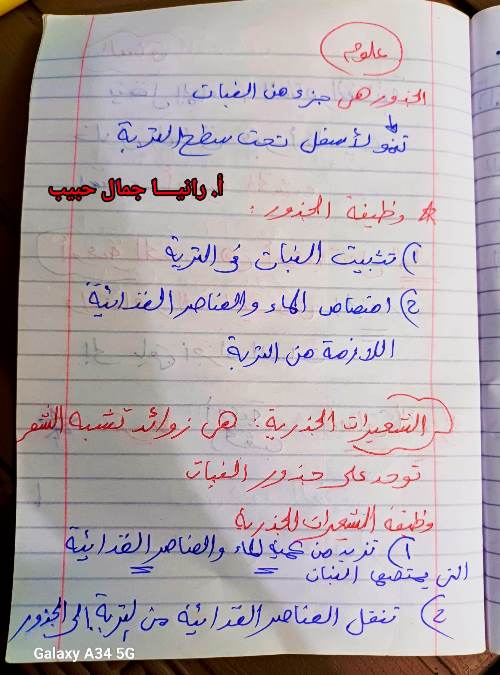 علوم
الجذور هي جزء من النبات
تنمو لأسفل تحت سطح التربة
أ. رانيا جمال حبيب
* وظيفة الجذور :
1) تثبيت النبات في التربة
2) امتصاص الماء والعناصر الغذائية
اللازمة من التربة
الشعيرات الجذرية : هي زوائد تشبه الشعر
توجد على جذور النبات
وظيفة الشعيرات الجذرية
1) تزيد من كمية الماء والعناصر الغذائية
التي يمتصها النبات
2) تنقل العناصر الغذائية من التربة إلى الجذور
Galaxy A34 5G